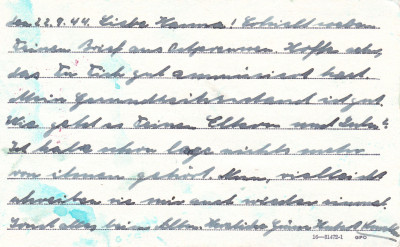 den 22.9.44. Liebe Hanna! Erhielt soeben
Deinen Brief aus Ostpreussen. Hoffe sehr,
das Du Dich gut amüsiert hast.
Mein Gesundheitszustand ist gut.
Wie geht es Deinen Eltern und
Ich habe schon lage nichts mehr
von ihnen gehört. Nun, vielleicht
schreiben sie mir auch wieder einmal.
Sonst alles beim Alten. Herzliche Grüsse
16—81478-1 GPO